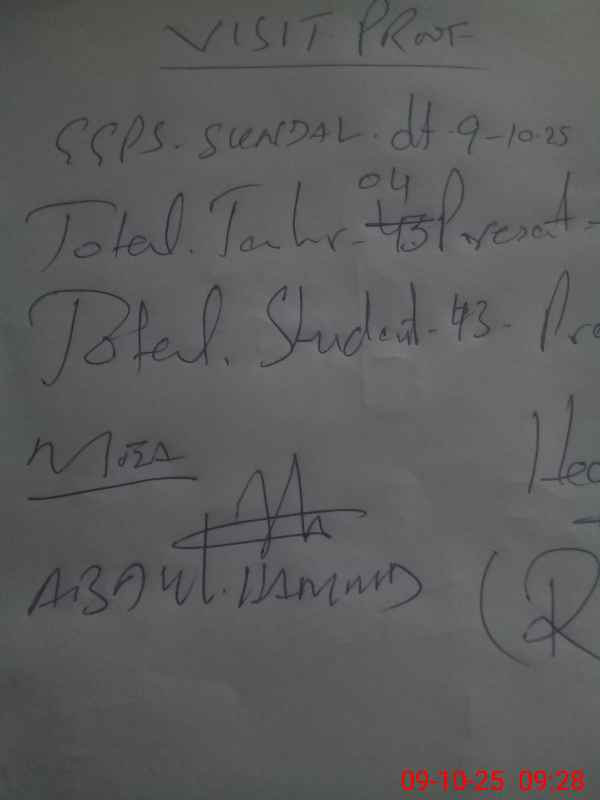 VISIT PROOF
GGPS. SUNDAL. dt 9-10-25
04
Total. Tachr - 43 Present -
Total. Student - 43 - Pre
Hea
MOEA
ABDUL. HAMMID
(R
09-10-25 09:28